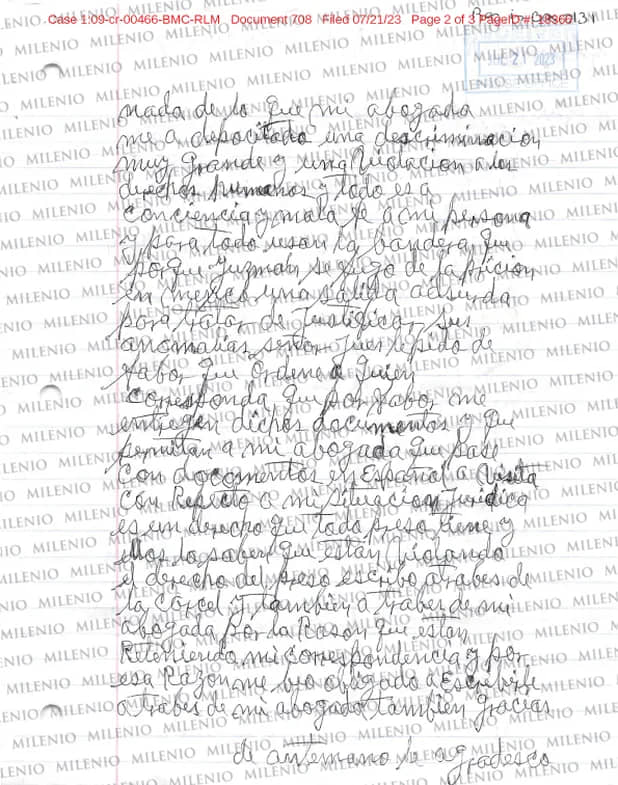 Case 1:09-cr-00466-BMC-RLM Document 708 Filed 07/21/23 Page 2 of 3 PageID #:
JUL 21 2023
nada de lo que mi abogada
me a depocitado una descriminacion
muy grande y una Violacion a los
derechos humanos y todo es a
Conciencia y mala fe a mi persona
y para todo usan la bandera que
porque Guzman se fugo de la pricion
en mexico y una salida adsurda
para tratar de Justificar sus
anomalias señor Jues le pido de
fabor que ordene a quien
Corresponda que por fabor me
entregen dichos documentos y que
permitan a mi abogada que pase
Con documentos en Español a Visita
Con Repecto a mi situacion Juridica
es un derecho que todo preso tiene y
ellos lo saben que estan Violando
el derecho del preso escribo a trabes de
la Carcel y tambien a traber de mi
abogada por la Rason que estan
Retoniendo mi correspondencia y por
esa Razon me veo obligado a Escribirle
a trabes de mi abogada tambien gracias
de antemano le agradesco
MILENIO